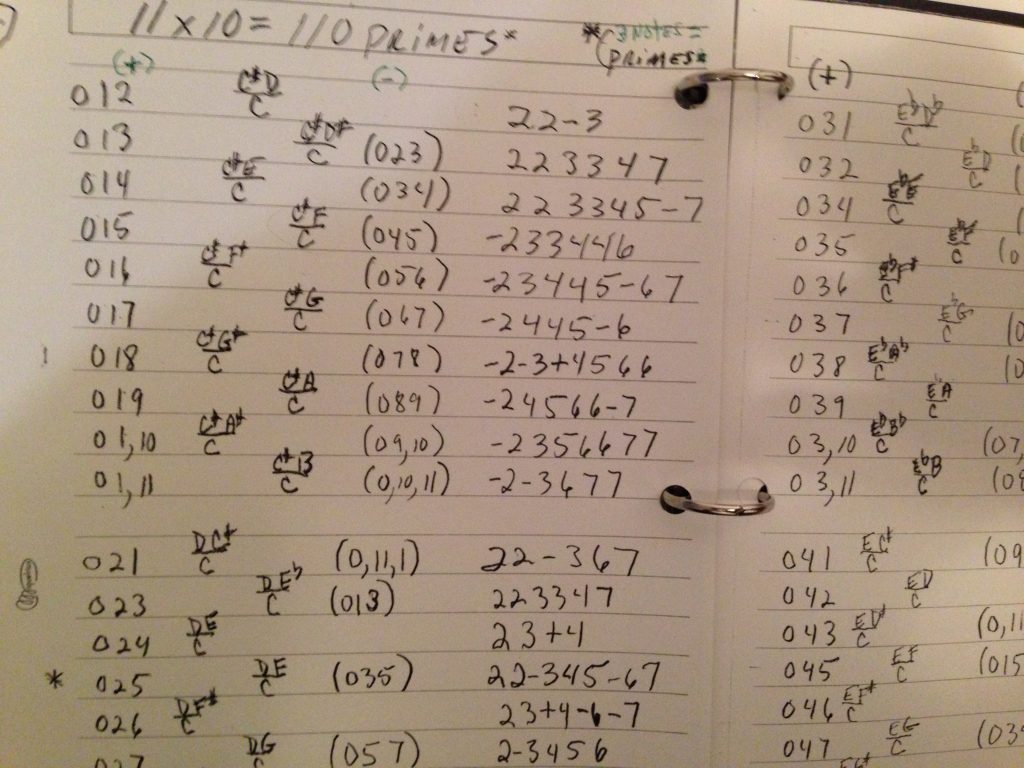 11 x 10 = 110 PRIMES*
* (3 NOTES = PRIMES*
(+) (-)
012 C#D/C 22-3
013 C#D#/C (023) 223347
014 C#E/C (034) 223345-7
015 C#F/C (045) -233446
016 C#F#/C (056) -23445-67
017 C#G/C (067) -2445-6
018 C#G#/C (078) -2-3+4566
019 C#A/C (089) -24566-7
01,10 C#A#/C (09,10) -2356677
01,11 C#B/C (0,10,11) -2-3677
021 DC#/C (0,11,1) 22-367
023 DEb/C (013) 223347
024 DE/C 23+4
* 025 DE/C (035) 22-345-67
026 DF#/C 23+4-6-7
027 DG/C (057) 2-3456
(+)
031 EbDb/C
032 EbD/C
034 EbE/C
035 EbF/C (0
036 EbF#/C
037 EbG/C (0
038 EbAb/C (0
039 EbA/C
03,10 EbBb/C (07,
03,11 EbB/C (08
041 EC#/C (09
042 ED/C
043 ED#/C (0,11
045 EF/C (015
046 EF#/C
047 EG/C (03